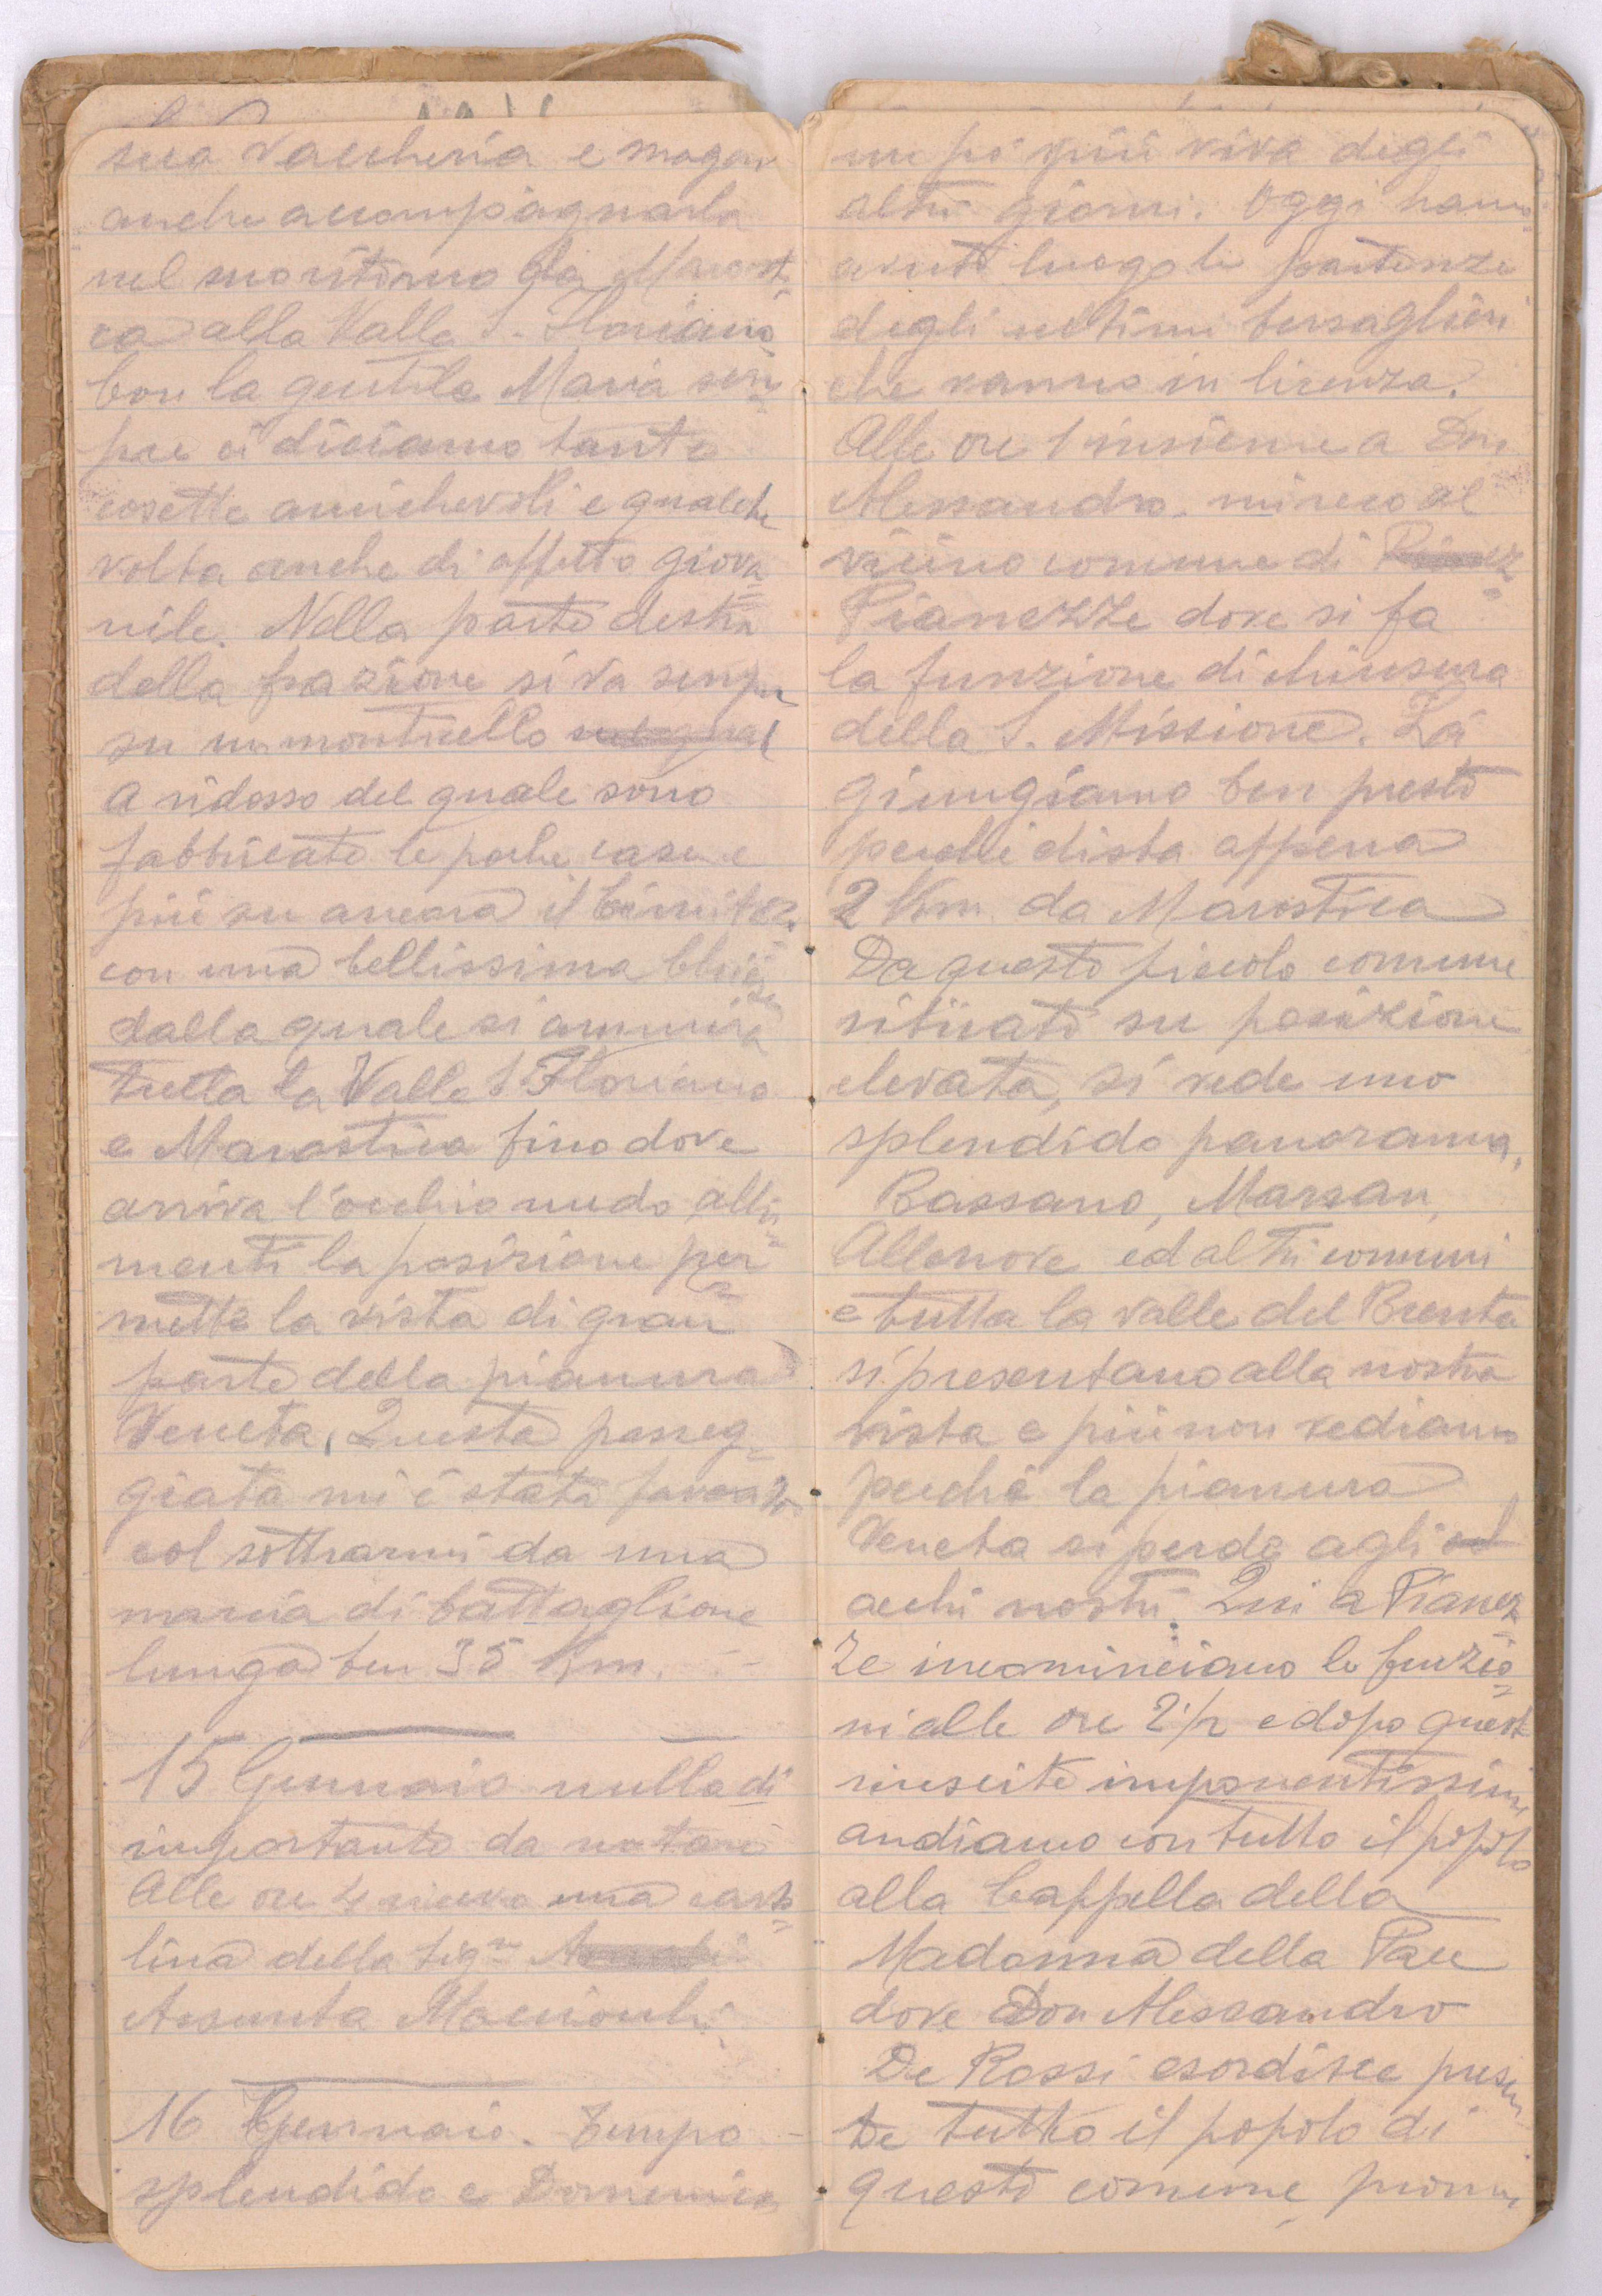 sua Vaccheria e magari
anche accompagnarla
nel suo ritorno da Marost=
ca alla Valle S. Floriano
Con la gentile Maria sem=
pre ci diciamo tante
cosette amichevoli e qualche
volta anche di affetto giova=
nile. Nella parte destra
della frazione si va sempre
su un monticello
a ridosso del quale sono
fabbricate le poche case e
più su ancora il Cimitero
con una bellissima Chiesa
dalla quale si ammira
tutta la Valle S. Floriano
e Marostica fino dove
arriva l'occhio nudo, altri=
menti la posizione per=
mette la vista di gran
parte della pianura
Veneta. Questa passeg=
giata mi è stata
col sottrarmi da una
marcia di battaglione
lunga ben 35 Km. -
15 Gennaio nulla di
importante da notare
Alle ore 4 ricevo una carto=
lina della Sigra
Assunta
16 Gennaio. Tempo
splendido e Domenica
un pò più viva degli
altri giorni. Oggi hanno
avuto luogo le partenze
degli ultimi bersaglieri
che vanno in licenza.
Alle ore 1 insieme a Don
Alessandro mi reco al
vicino comune di
Pianezze dove si fa
la funzione di chiusura
della S. Missione. Là
giungiamo ben presto
perchè dista appena
2 Km da Marostica
Da questo piccolo comune
situato su posizione
elevata, si vede uno
splendido panorama,
Bassano, Marsan,
Allenove ed altri comuni
e tutta la valle del Brenta
si presentano alla nostra
vista e più non vediamo
perchè la pianura
Veneta si perde agli
occhi nostri. Qui a Pianez=
ze incominciano le funzio=
ni alle ore 2½ e dopo queste
riuscite imponentissime
andiamo con tutto il popolo
alla Cappella della
Madonna della Pace
dove Don Alessandro
De Rossi esordisce presen
te tutto il popolo di
questo comune,